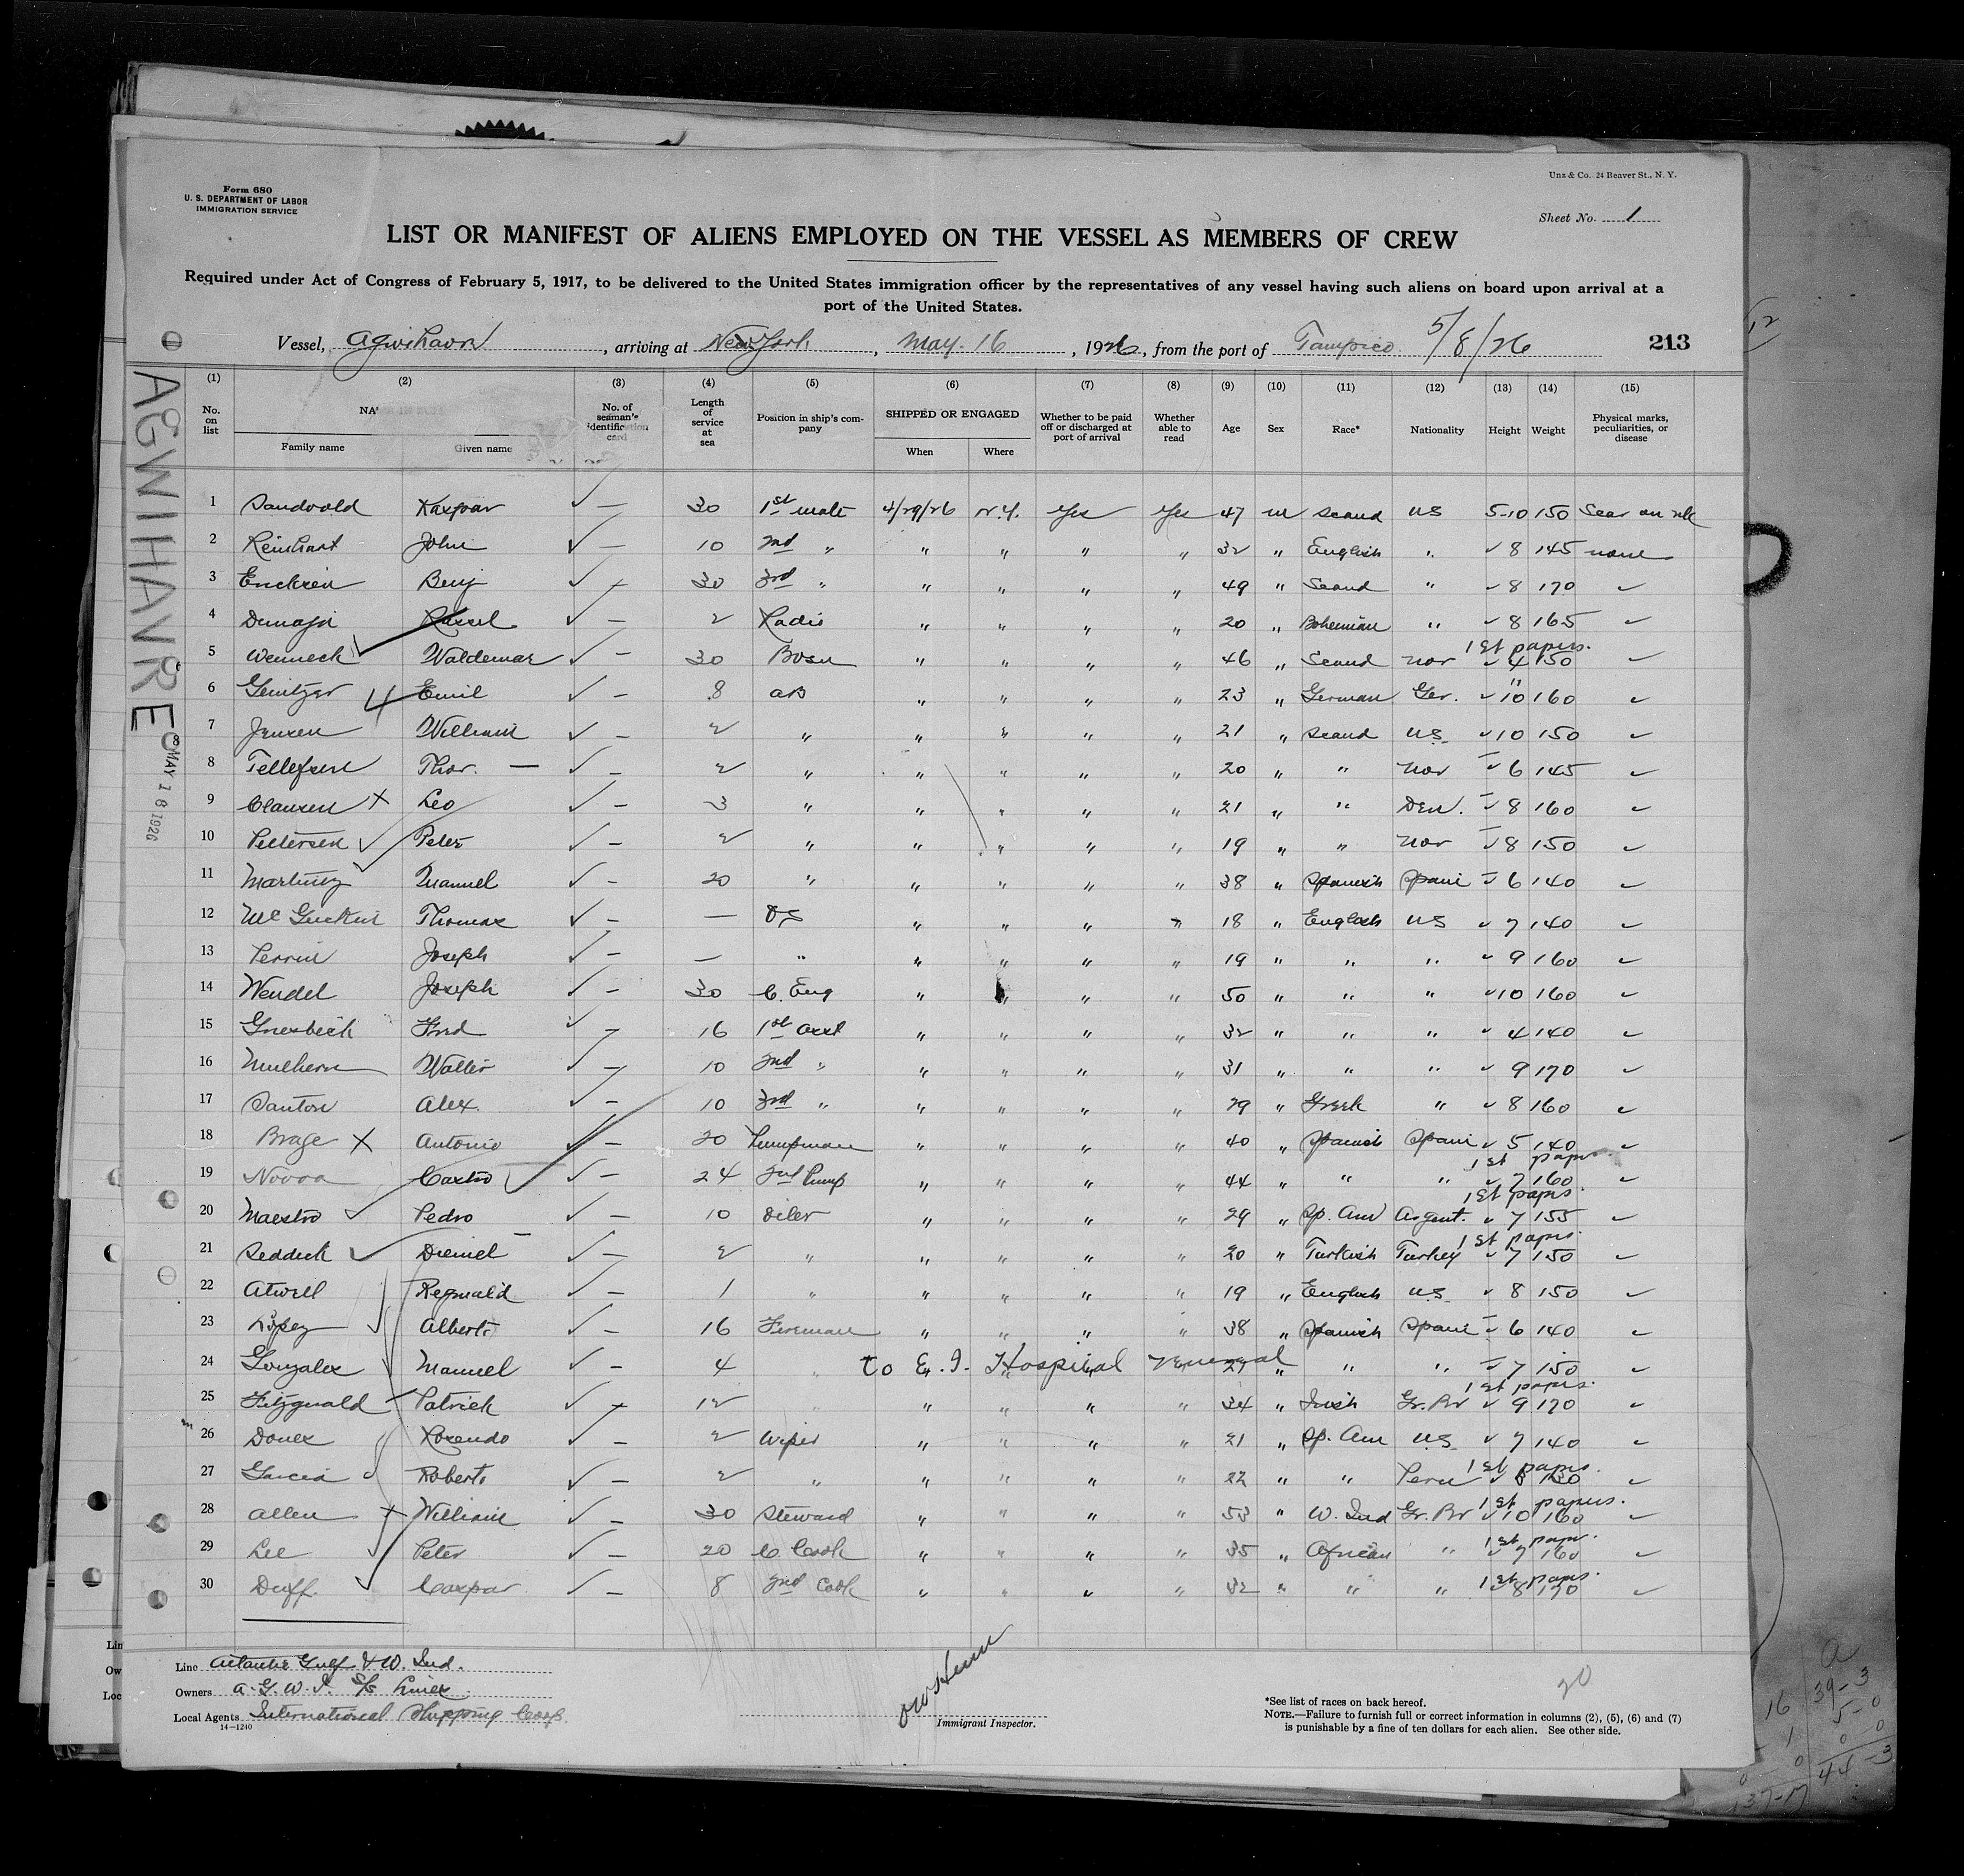 Form 680
U. S. DEPARTMENT OF LABOR
IMMIGRATION SERVICE
Unz & Co. 24 Beaver St., N. Y.
Sheet No. 1
LIST OR MANIFEST OF ALIENS EMPLOYED ON THE VESSEL AS MEMBERS OF CREW
Required under Act of Congress of February 5, 1917, to be delivered to the United States immigration officer by the representatives of any vessel having such aliens on board upon arrival at a
port of the United States.
Vessel, Agwihavre, arriving at New York, May 16, 1926, from the port of Tampico 5/8/26 213
AGWIHAVRE
MAY 16 1926
(1) (2) (3) (4) (5) (6) (7) (8) (9) (10) (11) (12) (13) (14) (15)
No. on list
Family name Given name
No. of seaman's identification card
Length of service at sea
Position in ship's company
SHIPPED OR ENGAGED
When Where
Whether to be paid off or discharged at port of arrival
Whether able to read
Age Sex Race* Nationality Height Weight
Physical marks, peculiarities, or disease
1 Sandvold Kaspar ✓ — 30 1st mate 4/29/26 N.Y. Yes Yes 47 m Scand US 5-10 150 Scar on
2 Reinhart John ✓ — 10 2nd " " " " " 32 " English " ✓ 8 145 none
3 Ericksen Benj ✓ — 30 3rd " " " " " 49 " Scand " ✓ 8 170 ✓
4 ✓ — 2 Radio " " " " 20 " Bohemian " ✓ 8 165 ✓
5 Wenneck Waldemar ✓ — 30 Bosn " " " " 46 " Scand Nor 1st papers. ✓ 4 150 ✓
6 Emil ✓ — 8 AB " " " " 23 " German Ger. " ✓ 10 160 ✓
7 Jensen William ✓ — 2 " " " " " 21 " Scand US ✓ 10 150 ✓
8 Tellefsen Thor. — ✓ — 2 " " " " " 20 " " Nor ✓ 6 145 ✓
9 Clausen X Leo ✓ — 3 " " " " " 21 " " Den. ✓ 8 160 ✓
10 Pettersen ✓ Peter ✓ — 2 " " " " " 19 " " Nor ✓ 8 150 ✓
11 Martinez Manuel ✓ — 20 " " " " " 38 " Spanish Spain 6 140 ✓
12 McGuckin Thomas ✓ — — OS " " " " 18 " English US ✓ 7 140 ✓
13 Perrin Joseph ✓ — — " " " " " 19 " " " ✓ 9 160 ✓
14 Wendel Joseph ✓ — 30 C. Eng " " " " 50 " " " ✓ 10 160 ✓
15 Griesbeck Fred ✓ — 16 1st asst " " " " 32 " " " ✓ 4 140 ✓
16 Mulhern Walter ✓ — 10 2nd " " " " " 31 " " " ✓ 9 170 ✓
17 Santon Alex. ✓ — 10 3rd " " " " " 29 " Greek " ✓ 8 160 ✓
18 Brage X Antonio ✓ — 20 Pumpman " " " " 40 " Spanish Spain ✓ 5 140 ✓
19 Novoa Castro ✓ — 24 2nd Pump " " " " 44 " " " 1st papers ✓ 7 160 ✓
20 Maestro ✓ Pedro ✓ — 10 Oiler " " " " 29 " Sp. Am Argent. 1st papers. ✓ 7 155 ✓
21 Seddick ✓ ✓ — 2 " " " " " 20 " Turkish Turkey 1st papers. ✓ 7 150 ✓
22 Atwell Reginald ✓ — 1 " " " " " 19 " English US ✓ 8 150 ✓
23 Lopez Alberto ✓ — 16 Fireman " " " " 38 " Spanish Spain 6 140 ✓
24 Gonzalez Manuel ✓ — 4 " to E. I. Hospital Venereal 27 " " " 7 150 ✓
25 Fitzgerald Patrick ✓ — 12 " " " " " 34 " Irish Gr. Br 1st papers. ✓ 9 170 ✓
26 Rosendo ✓ — 2 Wiper " " " " 21 " Sp. Am US ✓ 7 140 ✓
27 Garcia Roberto ✓ — 2 " " " " " 22 " " Peru 1st papers. 130 ✓
28 Allen William ✓ — 30 Steward " " " " 53 " W. Ind Gr. Br 1st papers. ✓ 10 160 ✓
29 Lee Peter ✓ — 20 C. Cook " " " " 35 " African " 1st papers. ✓ 7 160 ✓
30 Duff ✓ Caspar ✓ — 8 2nd Cook " " " " 32 " " " 1st papers. ✓ 8 170 ✓
Line Atlantic Gulf & W. Ind.
Owners A. G. W. I. S/S Lines
Local Agents International Shipping Corp.
14—1240
Immigrant Inspector.
20
*See list of races on back hereof.
NOTE.—Failure to furnish full or correct information in columns (2), (5), (6) and (7)
is punishable by a fine of ten dollars for each alien. See other side.
16 39-3
1 5-0
0 0 0
137-17 44-3